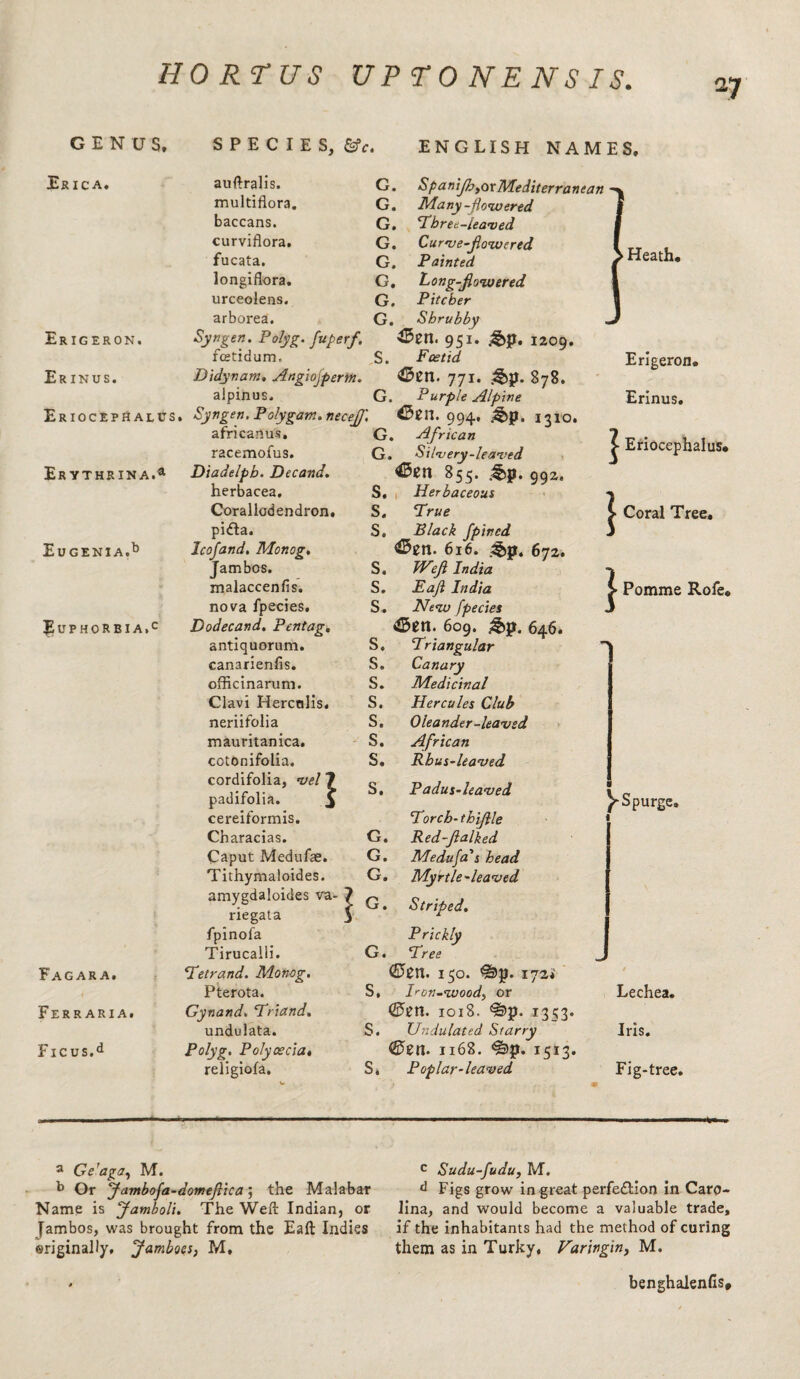 HORTUS UPTONENSIS. 27
GENUS, SPECIES, &c. ENGLISH NAMES.
ERICA. auſtralis. G. Spaniſh, or Mediterranean
multiflora. G. Many-flowered
baccans. G. Three-leaved
curviflora. G. Curve-flowered
fucata. G. Painted } Heath.
longiflora. G. Long-flowered
urceolens. G. Pitcher
arborea. G. Shrubby
ERIGERON. Syngen. Polyg. ſuperf. Gen. 951. Sp. 1209.
fœtidum. S. Fœtid Erigeron.
ERINUS. Didynam. Angioſperm. Gen. 771. Sp. 878.
alpinus. G. Purple Alpine Erinus.
ERIOCEPHALUS. Syngen. Polygam. neceſſ. Gen. 994. Sp. 1310.
africanus. G. African
racemoſus. G. Silvery-leaved } Eriocephalus.
ERYTHRINA.a Diadelph. Decand. Gen 855. Sp. 992.
herbacea. S. Herbaceous
Corallodendron. S. True } Coral Tree.
picta. S. Black ſpined
EUGENIA.b Icoſand. Monog. Gen. 616. Sp. 672.
Jambos. S. Weſt India
malaccenſis. S. Eaſt India } Pomme Roſe.
nova ſpecies. S. New ſpecies
EUPHORBIA.c Dodecand. Pentag. Gen. 609. Sp. 646.
antiquorum. S. Triangular
canarienſis. S. Canary
officinarum. S. Medicinal
Clavi Herculis. S. Hercules Club
neriifolia S. Oleander-leaved
mauritanica. S. African
cotonifolia. S. Rhus-leaved
cordifolia, vel }
padifolia. S. Padus-leaved } Spurge.
cereiformis. Torch-thiſtle
Characias. G. Red-ſtalked
Caput Meduſæ. G. Meduſa's head
Tithymaloides. G. Myrtle-leaved
amygdaloides va- }
riegata G. Striped.
ſpinoſa Prickly
Tirucalli. G. Tree
FAGARA. Tetrand. Monog. Gen. 150. Sp. 172.
Pterota. S. Iron-wood, or Lechea.
FERRARIA. Gynand. Triand. Gen. 1018. Sp. 1353.
undulata. S. Undulated Starry Iris.
FICUS.d Polyg. Polyœcia. Gen. 1168. Sp. 1513.
religioſa. S. Poplar-leaved Fig-tree.
a Ge'aga, M.
b Or Jamboſa-domeſtica; the Malabar
Name is Jamboli. The Weſt Indian, or
Jambos, was brought from the Eaſt Indies
originally. Jamboes, M.
c Sudu-ſudu, M.
d Figs grow in great perfection in Caro-
lina, and would become a valuable trade,
if the inhabitants had the method of curing
them as in Turky. Varingin, M.
benghalenſis,